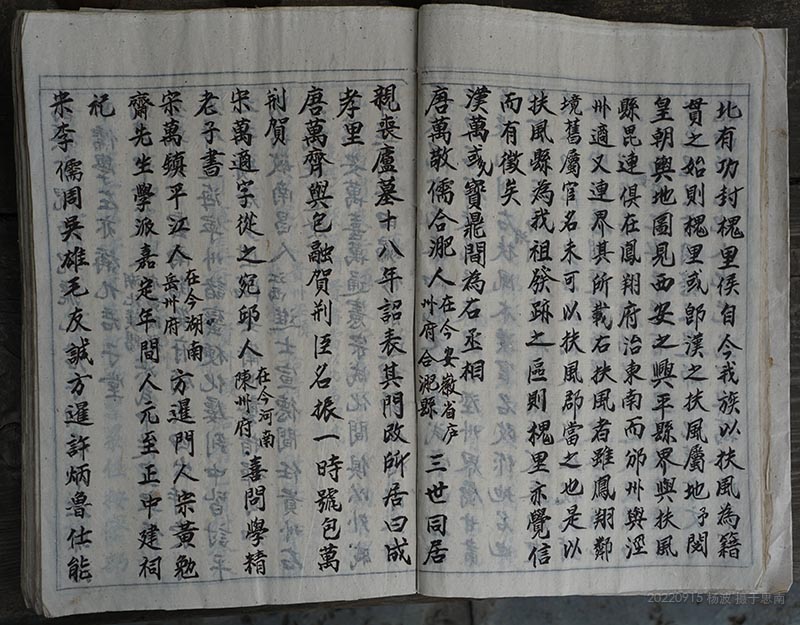 北有功封槐里侯自今我族以扶風為籍
貫之始則槐里或即漢之扶風屬地予閱
皇朝輿地圖見西安之興平縣界與扶風
縣毘連俱在鳳翔府治東南而邠州與涇
州適又連界其所載右扶風者雖鳳翔鄰
境舊屬官名未可以扶風郡當之也是以
扶風縣為我祖發跡之區則槐里亦覺信
而有徵矣
漢萬彧寶鼎間為右丞相
唐萬敬儒合淝人在今安徽省庐州府合淝縣三世同居
親喪廬墓十八年詔表其門改所居曰成
孝里
唐萬齊與包融賀荊臣名振一時號包萬
荊賀
宋萬適字從之宛邱人在今河南陳州府喜問學精
老子書
宋萬鎮平江人在今湖南岳州府方暹門人宗黃勉
齋先生學派嘉定年間人元至正中建祠
祀
宋李儒周吳雄毛友誠方暹許炳魯仕能
20220915 杨波 摄于思南